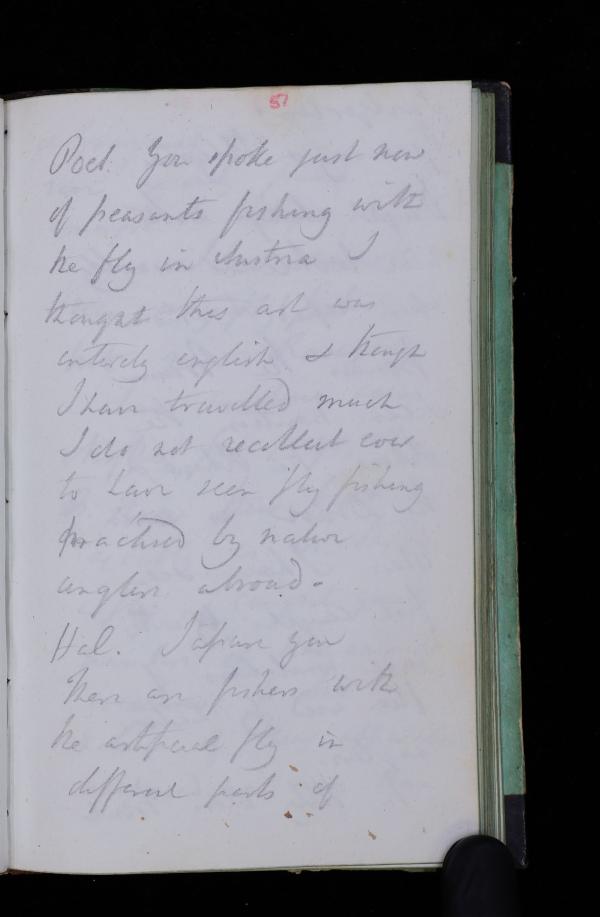 57
Poet. You spoke just now
of peasants fishing with
the fly in Austria I
thought this art was
entirely english & though
I have travelled much
I do not recollect ever
to have seen fly fishing
practised by native
anglers abroad.
Hal. I assure you
there are fishers with
the artificial fly in
different parts of